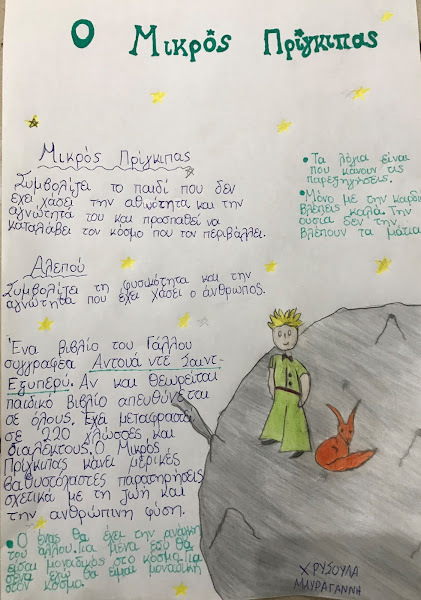 Ο Μικρός Πρίγκιπας
Μικρός Πρίγκιπας
Συμβολίζει το παιδί που δεν
έχει χάσει την αθωότητα και την
αγνότητά του και προσπαθεί να
καταλάβει τον κόσμο που τον περιβάλλει.
Αλεπού
Συμβολίζει τη φυσικότητα και την
αγνότητα που έχει χάσει ο άνθρωπος.
Ένα βιβλίο του Γάλλου
συγγραφέα Αντουά ντε Σαιντ-
Εξυπερύ. Αν και θεωρείται
παιδικό βιβλίο απευθύνεται
σε όλους. Έχει μεταφραστεί
σε 220 γλώσσες και
διαλέκτους. Ο Μικρός
Πρίγκιπας κάνει μερικές
βαθυστόχαστες παρατηρήσεις
σχετικά με τη ζωή και
την ανθρώπινη φύση.
• Ο ένας θα έχει την ανάγκη
του άλλου. Για μένα εσύ θα
είσαι μοναδικός στο κόσμο. Για
σένα εγώ θα είμαι μοναδική
στον κόσμο.
• Τα λόγια είναι
που κάνουν τις
παρεξηγήσεις.
• Μόνο με την καρδιά
βλέπεις καλά. Την
ουσία δεν την
βλέπουν τα μάτια.
ΧΡΥΣΟΥΛΑ
ΜΑΥΡΑΓΑΝΝΗ